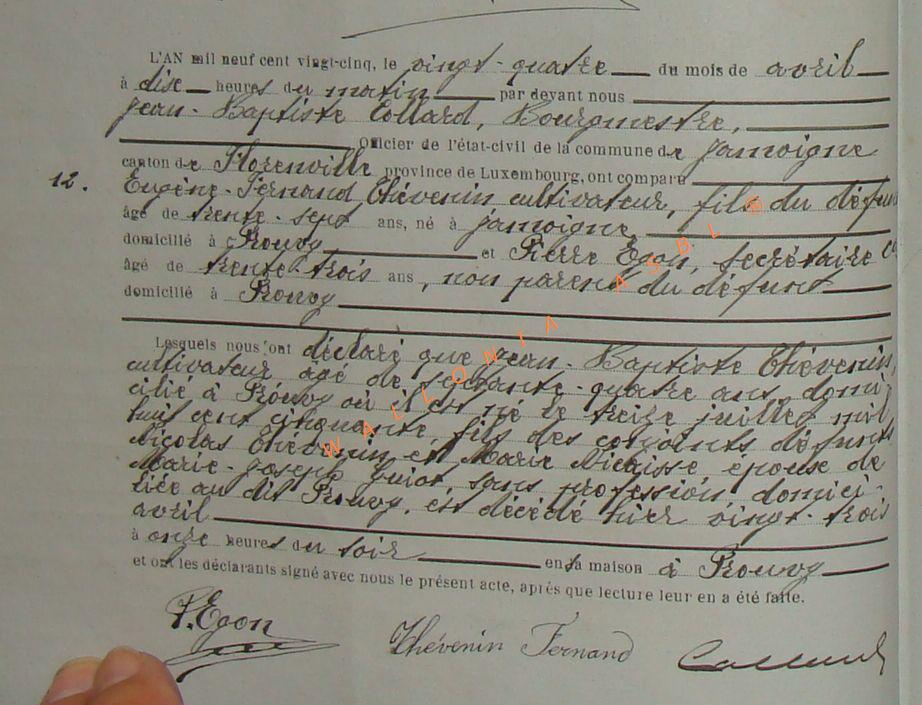 L'AN mil neuf cent vingt-cinq, le vingt-quatre du mois de avril
à dise heures du matin par devant nous
Jean-Baptiste Collard, Bourgmestre,
Officier de l'état-civil de la commune de Jamoigne
canton de Florenville province de Luxembourg, ont comparu
12. Eugène-Fernand Thévenin cultivateur, fils du défunt
âgé de trente-sept ans, né à Jamoigne
domicilié à Prouvy et Pierre Egon, secrétaire Cl
âgé de trente-trois ans, non parent du défunt
domicilié à Prouvy
Lesquels nous ont déclaré que Jean-Baptiste Thévenin,
cultivateur âgé de septante-quatre ans, domi-
cilié à Prouvy où il est né le treize juillet mil
huit cent cinquante, fils des conjoints défunts
Nicolas Thévenin et Marie Nicaisse époux de
Marie-Joseph Guiot, sans profession, domici-
liée au dit Prouvy, est décédé hier vingt-trois
avril
à onze heures du soir en sa maison à Prouvy
et ont les déclarants signé avec nous le présent acte, après que lecture leur en a été faite.
P. Egon Thévenin Fernand Collard
WALLONIA ASBL ®